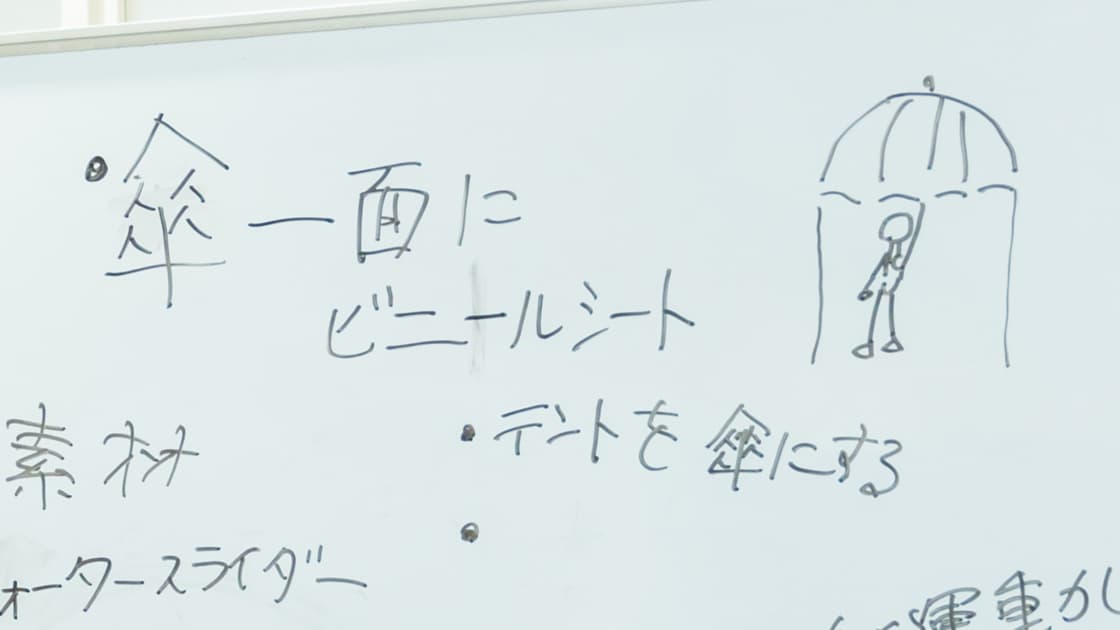 ・傘一面に
ビニールシート
素材
・テントを傘にする
ォータースライダー
・